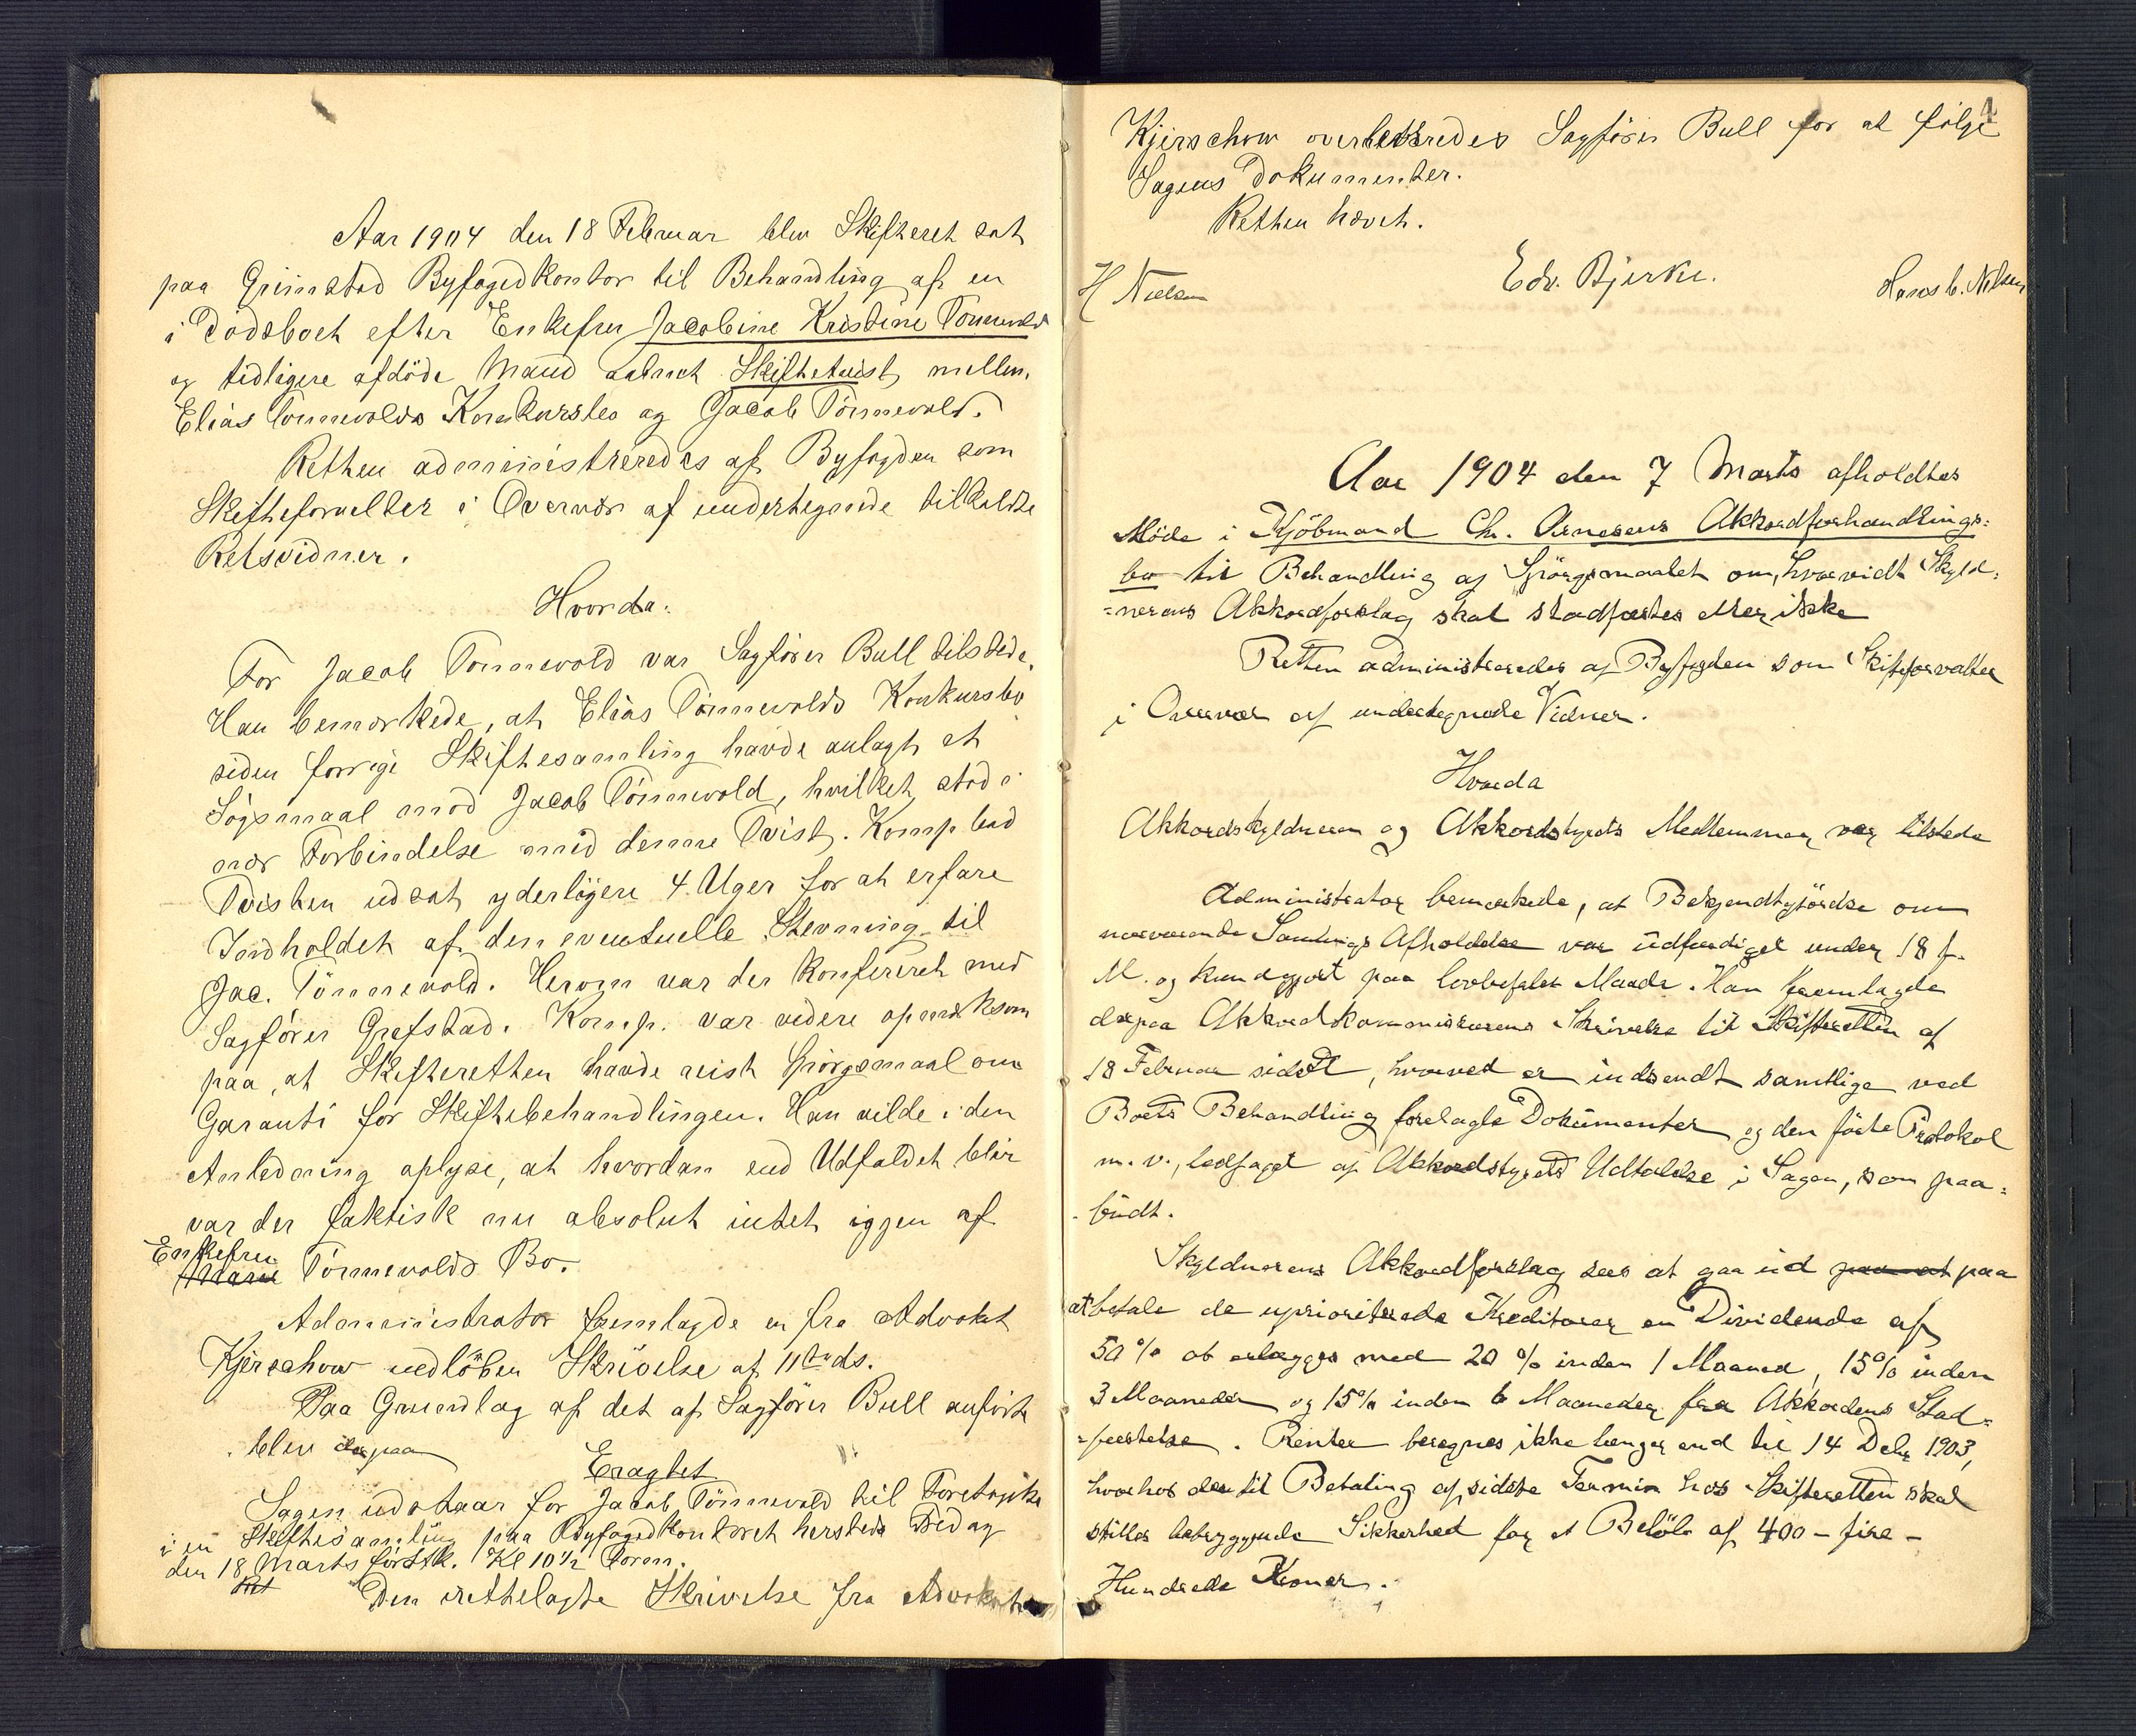 Aar 1904 den 18 Februar blev Skifteret sat
paa Grimstad Byfogedkontor til Behandling af en
i Dödsboet efter Enkefru Jacobine Kristine Tönnevold
og tidligere afdöde Mand aabnet Skiftetvist mellem
Elias Tönnevolds Konkursbo og Jacob Tönnevold.
Retten administreredes af Byfogden som
Skifteforvalter i Overvær af undertegnede tilkaldte
Retsvidner.
Hvorda:
For Jacob Tönnevold var Sagförer Bull tilstede.
Han bemærkede, at Elias Tönnevolds Konkursbo
siden forrige Skiftesamling havde anlagt et
Sögsmaal mod Jacob Tönnevold, hvilket stod i
nær Forbindelse med denne Tvist. Komp. bad
Tvisten udsat yderligere 4 Uger for at erfare
Indholdet af den eventuelle Stevning til
Jac. Tönnevold. Herom var der konfereret med
Sagförer Grefstad. Komp. var videre opmerksom
paa, at Skifteretten havde reist Spörgsmaal om
Garanti for Skiftebehandlingen. Han vilde i den
Anledning oplyse, at hvordan end Udfaldet blir
var der faktisk nu absolut intet igjen af
Enkefru
Marie Tönnevolds Bo.
Administrator fremlagde en fra Advokat
Kjerschow indlöben Skrivelse af 11te ds.
Paa Grundlag af det af Sagförer Bull anförte
blev derpaa
Eragtet
Sagen udstaar for Jacob Tönnevold til Foretagelse
i en Skiftesamling paa Byfogedkontoret hersteds Fredag
den 18 Marts förstk. Kl 10½ Form.
Ret
Den retthelagte Skrivelse fra Advokat
1
Kjerschow overleveredes Sagförer Bull for at fölge
Sagens Dokumenter.
Retten hævet.
Edv. Bjerke.
H Nielsen
Hans C. Nilsen
Aar 1904 den 7 Marts afholdtes
Möde i Kjöbmand Chr. Arnesens Akkordforhandlings=
bo til Behandling af Spörgsmaalet om, hvorvidt Skyld=
=nerens Akkordforslag skal stadfæstes eller ikke
Retten administreredes af Byfogden som Skifteforvalter
i Overvær af undertegnede Vidner.
Hvorda
Akkordskyldneren og Akkordstyrets Medlemmer var tilstede
Administrator bemærkede, at Bekjendtgjörelse om
nærværende Samlings Afholdelse var udfærdiget under 18 f.
M. og kundgjort paa lovbefalet Maade. Han fremlagde
derpaa Akkordkommissærens Skrivelse til Skifteretten af
18 Februar sidstl, hvorved er indsendt samtlige ved
Boets Behandling forelagte Dokumenter og den förte Protokol
m. v., ledsaget af Akkordstyrets Udtalelse i Sagen, som paa=
budt.
Skyldnerens Akkordforslag sees at gaa ud paa at paa
at betale de uprioriterede Kreditorer en Dividende af
50 % at erlægges med 20 % inden 1 Maaned, 15 % inden
3 Maaneder og 15 % inden 6 Maaneder fra Akkordens Stad=
=fæstelse. Renter beregnes ikke længer end til 14 Decbr 1903,
hvorhos der til Betaling af sidste Termin hos Skifteretten skal
stilles betryggende Sikkerhed for et Belöb af 400 – fire –
Hundrede Kroner.